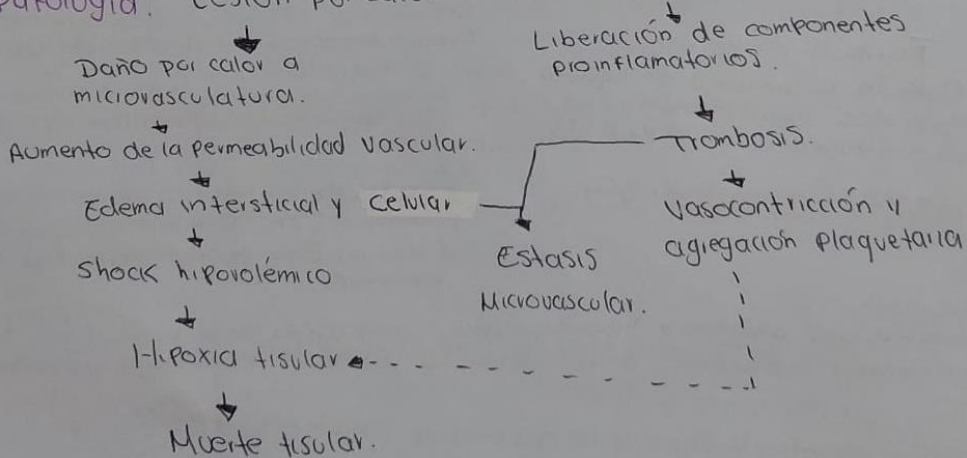 Lesión por
Daño por calor a
microvasculatura.
Aumento de la permeabilidad vascular.
Edema intersticial y celular
Shock hipovolémico
Hipoxia tisular
Muerte tisular.
Liberación de componentes
proinflamatorios.
Trombosis.
Vasocontricción y
agregación plaquetaria
Estasis
Microvascular.